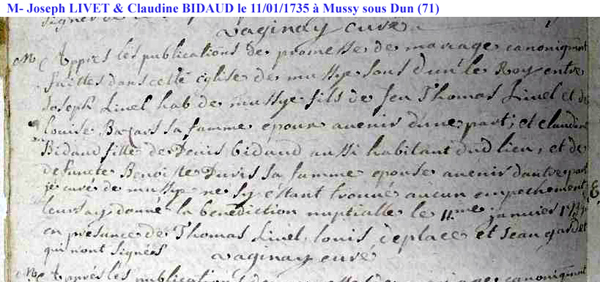 M- Joseph LIVET & Claudine BIDAUD le 11/01/1735 à Mussy sous Dun (71)
vaginay curé
M Appres les publications de promesse de mariage canoniquement
faittes dans cette eglise de mussye sous dun le Roy entre
Joseph Livel hab de mussye fils de feu Thomas Livel et de
louise Bajars sa famme epoux avenir dune part; et claudine
Bidaud fille de Denis bidaud aussi habitant dud lieu, et de
defuncte Benoiste Duris sa famme epouse avenir dautre part
je curé de mussye ne sy estant trouvé aucun empechement
leurs ay donné la benediction nuptialle le 11me janvier
en presence de Thomas Livel, louis deplace et jean
qui nont signés
vaginay curé
M Appres les publications de mariage canoniquement